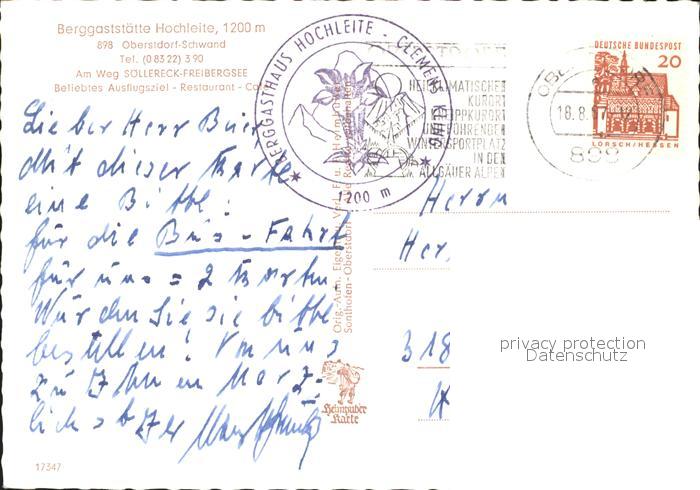 Berggaststätte Hochleite, 1200 m
898 Oberstdorf-Schwand
Tel. (0 83 22) 3 90
Am Weg SÖLLERECK-FREIBERGSEE
Beliebtes Ausflugsziel - Restaurant - Café
BERGGASTHAUS HOCHLEITE - CLEMENS KLING
1200 m
HEILKLIMATISCHER
KURORT
KNEIPPKURORT
UND FÜHRENDER
WINTERSPORTPLATZ
IN DEN
ALLGÄUER ALPEN
18.8.
898
DEUTSCHE BUNDESPOST
20
LORSCH/HESSEN
Lieber Herr
Mit dieser Karte
eine Bitte:
für die Bus-Fahrt
für uns = 2 Karten.
Würden Sie sie bitte
bestellen! Von uns
zu Ihnen Herz-
lichst Ihr
Herrn
Her
318
Heimhuber
Karte
Sonthofen - Oberstdorf
17347
privacy protection
Datenschutz